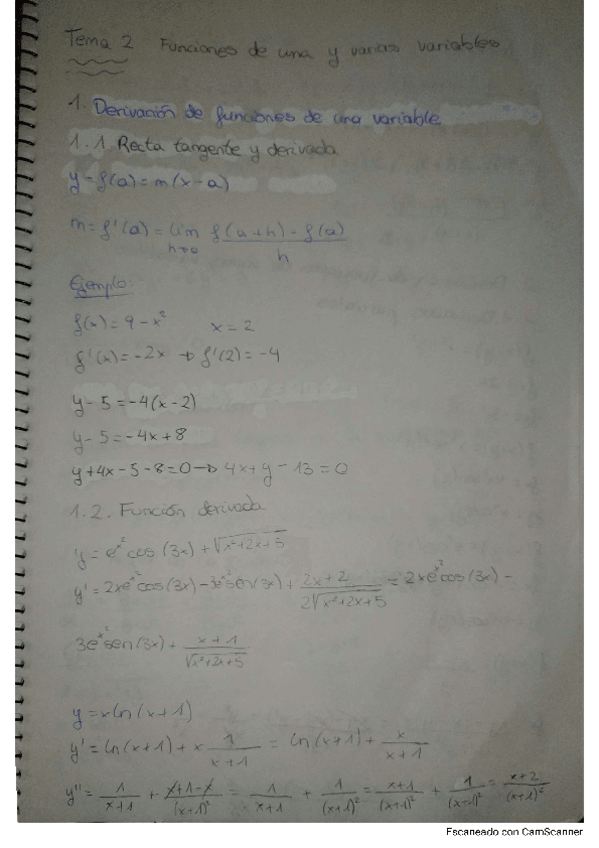 Tema 2 Funciones de una y varias variables
1. Derivación de funciones de una variable
1.1. Recta tangente y derivada
y - f(a) = m(x - a)
m = f'(a) = lim h→0 (f(a+h) - f(a))/h
Ejemplo:
f(x) = 9 - x² x = 2
f'(x) = -2x → f'(2) = -4
y - 5 = -4(x - 2)
y - 5 = -4x + 8
y + 4x - 5 - 8 = 0 → 4x + y - 13 = 0
1.2. Función derivada
y = e^x² cos(3x) + √(x²+2x+5)
y' = 2xe^x² cos(3x) - 3e^x² sen(3x) + (2x+2)/(2√(x²+2x+5)) = 2xe^x² cos(3x) -
3e^x² sen(3x) + (x+1)/√(x²+2x+5)
y = x ln(x+1)
y' = ln(x+1) + x 1/(x+1) = ln(x+1) + x/(x+1)
y'' = 1/(x+1) + (x+1-x)/(x+1)² = 1/(x+1) + 1/(x+1)² = (x+1)/(x+1)² + 1/(x+1)² = (x+2)/(x+1)²
Escaneado con CamScanner